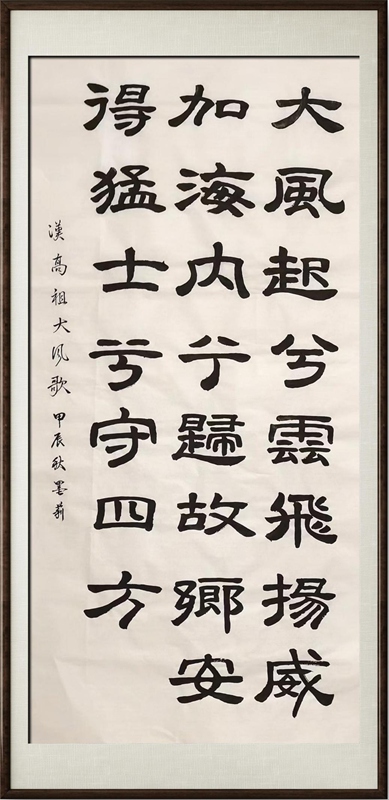 大風起兮雲飛揚威
加海内兮歸故鄉安
得猛士兮守四方
漢高祖大风歌 甲辰秋墨莉